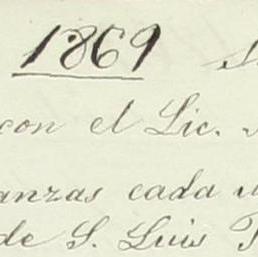 1869
con el Lic.
anzas cada
de S. Luis